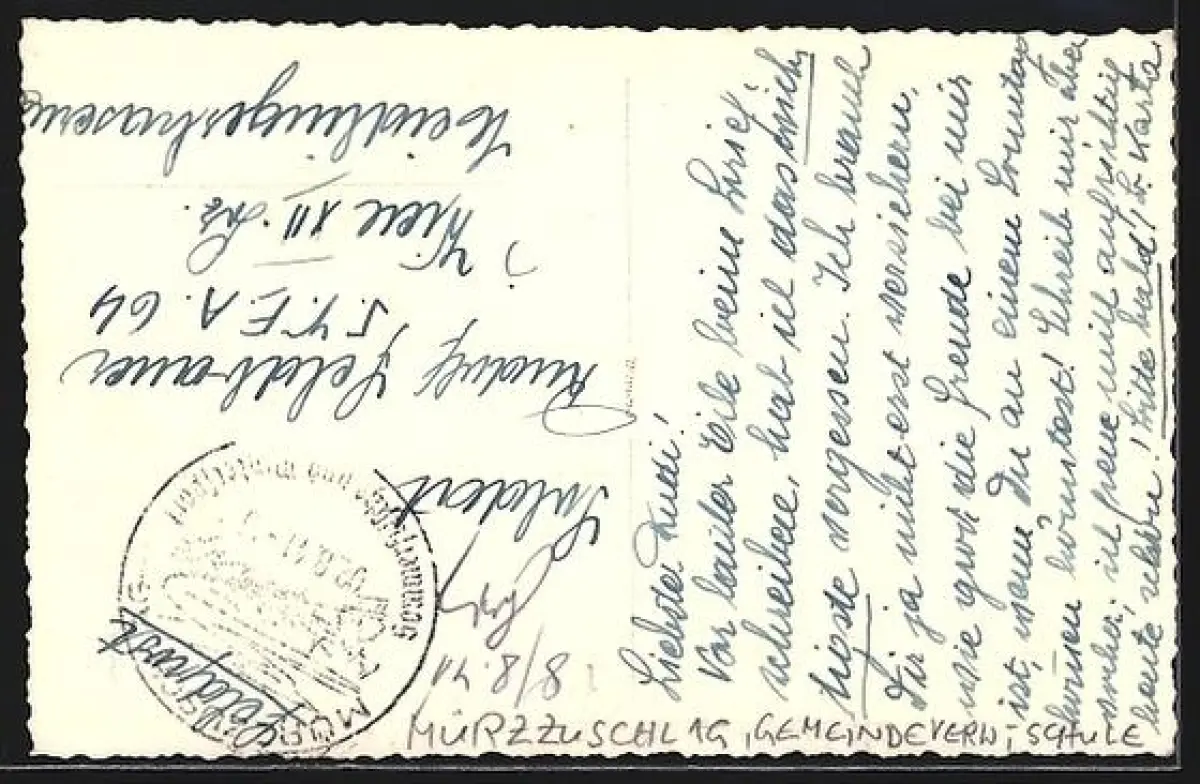 Liebster Rudi!
Vor lauter Eile beim Brief
schreiben, hab ich das Wich
tigste vergessen. Ich brauch
Dir ja nicht erst versichern,
wie groß die Freude bei mir
ist, wenn Du an einem Sonntag
kommen könntest! Schreib mir aber
vorher, ich freue mich aufrichtig
heute schon! Bitte bald 1 Karte
Feldpost
Soldat
Rudolf Feldbauer
S.T.E.A. 64
Wien XII.
Meidlingerkaserne
8/8.41
MÜRZZUSCHLAG, GEMEINDEVERW, SCHULE
MÜRZZUSCHLAG
Sommerfrische und